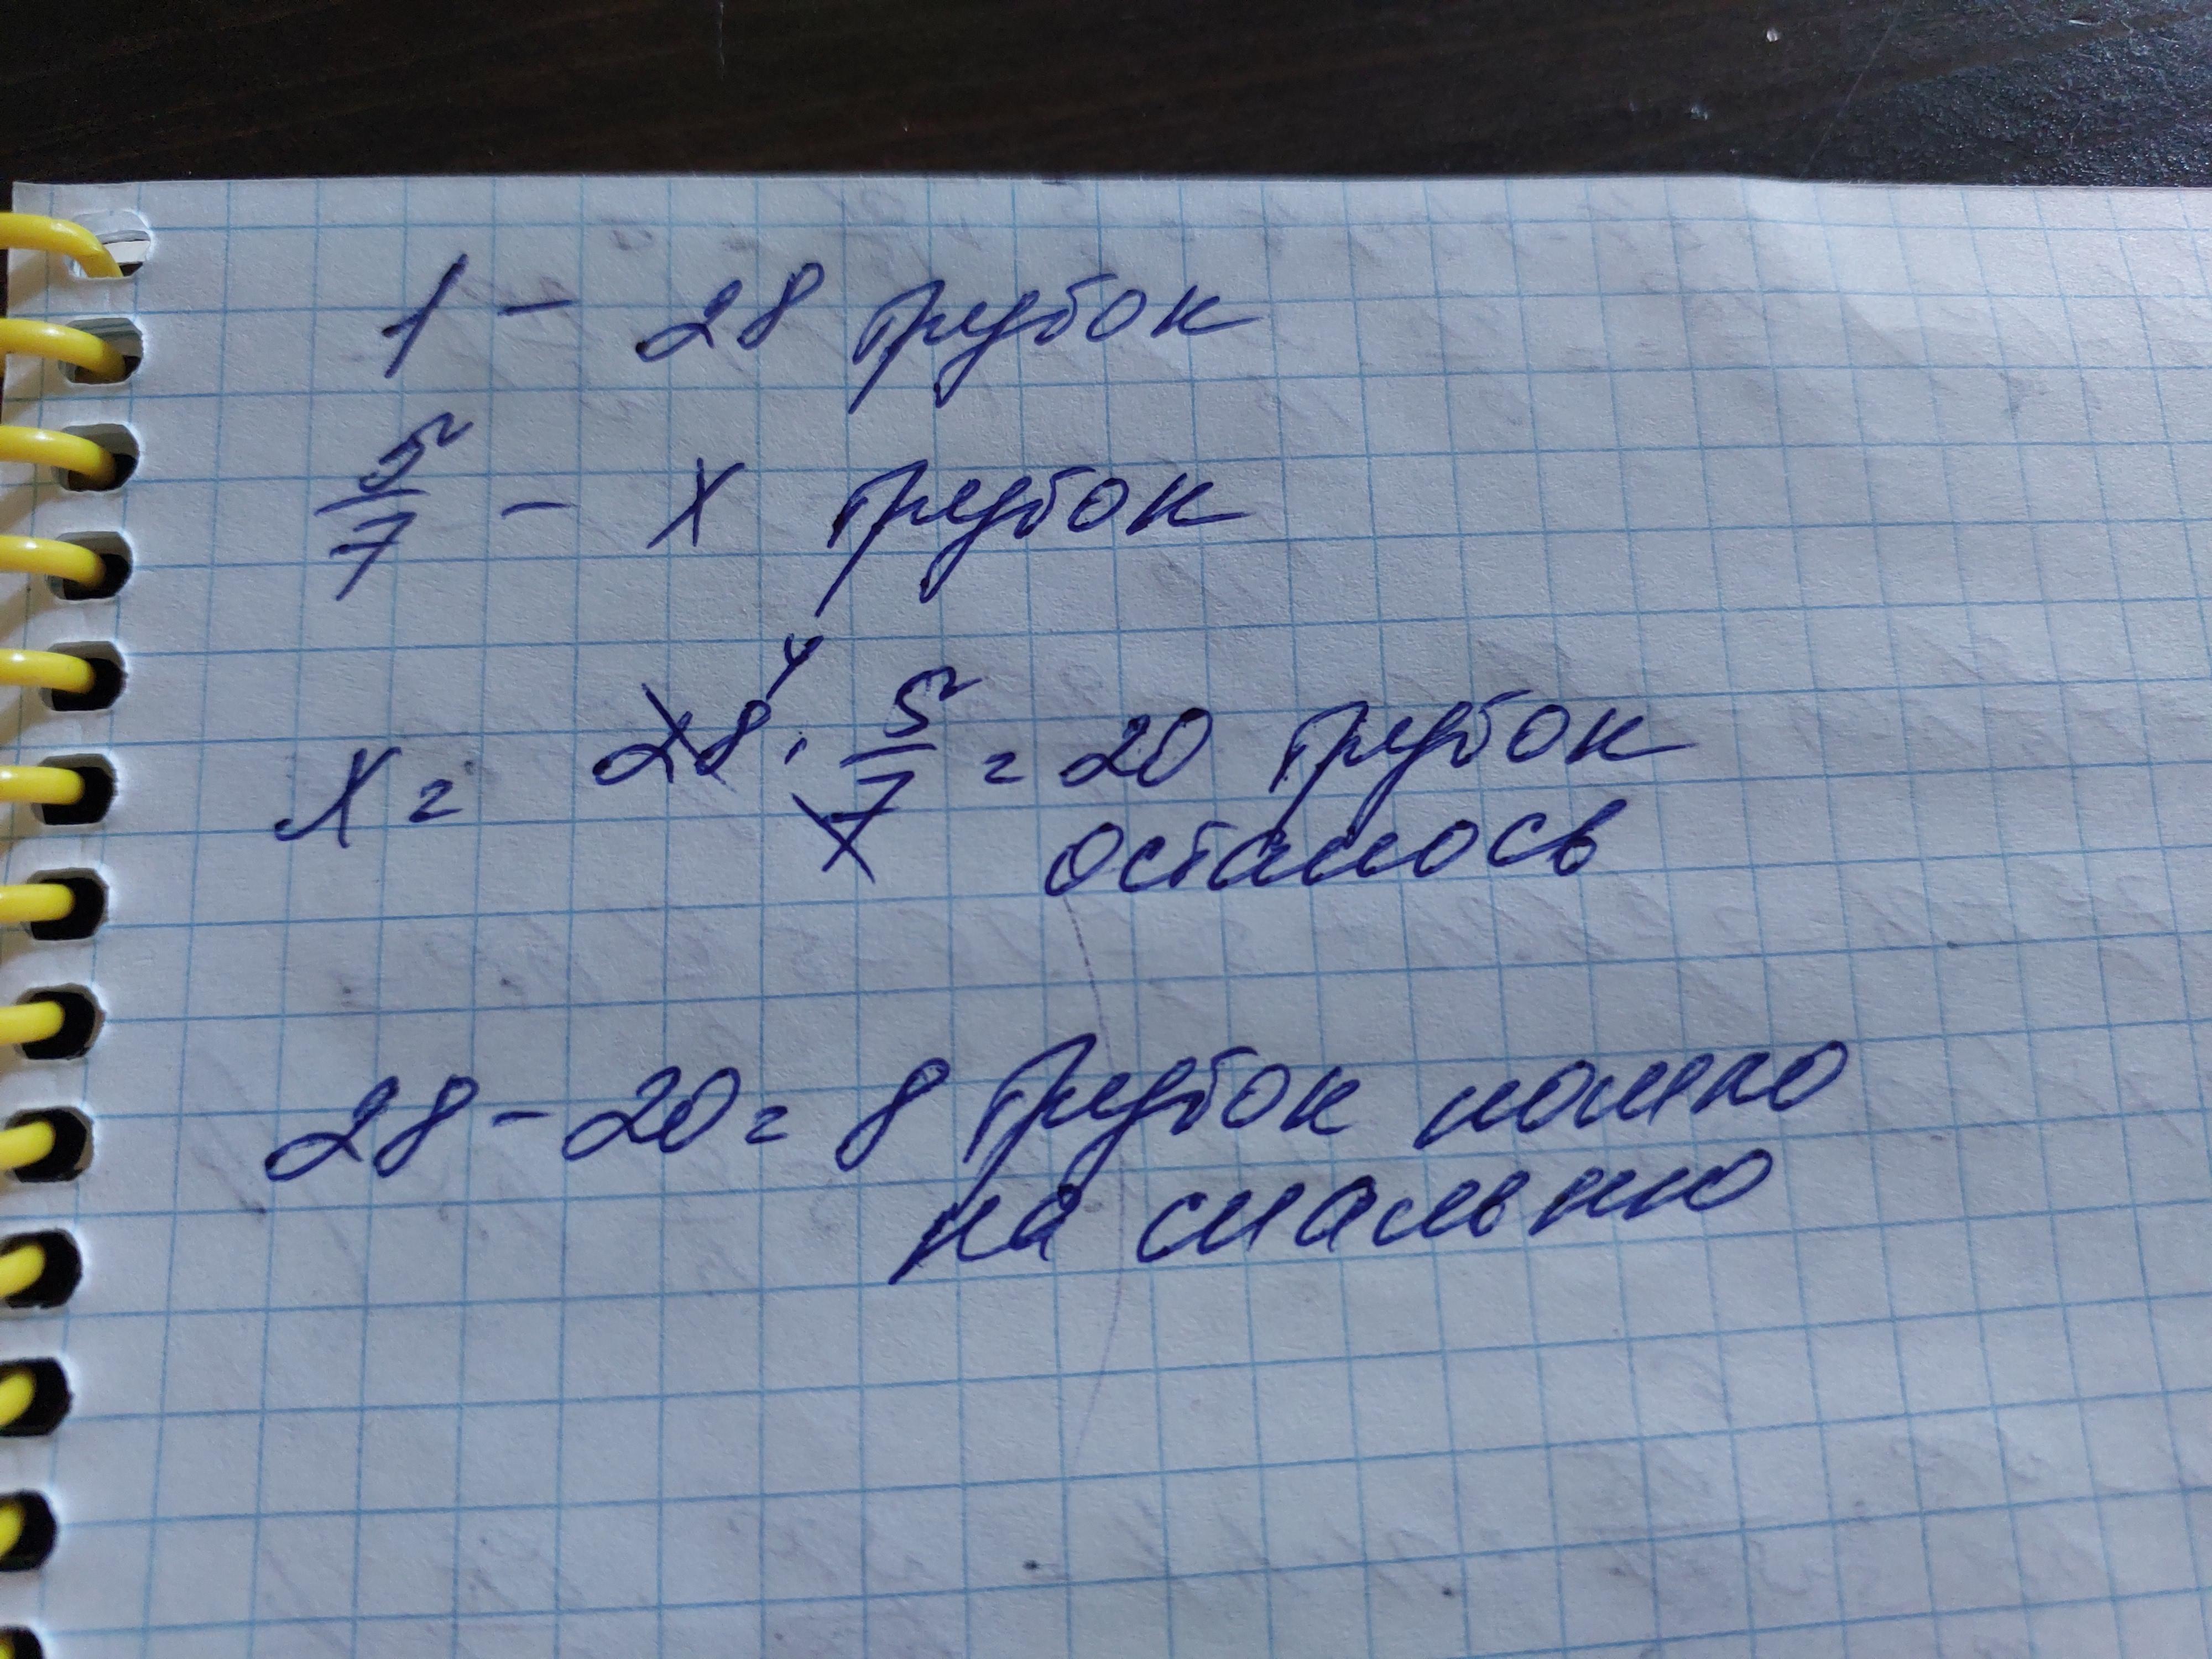 1 - 28 трубок
5/7 - х трубок
х = 28 4 · 5/7 = 20 трубок
осталось
28 - 20 = 8 трубок пошло
на спальню